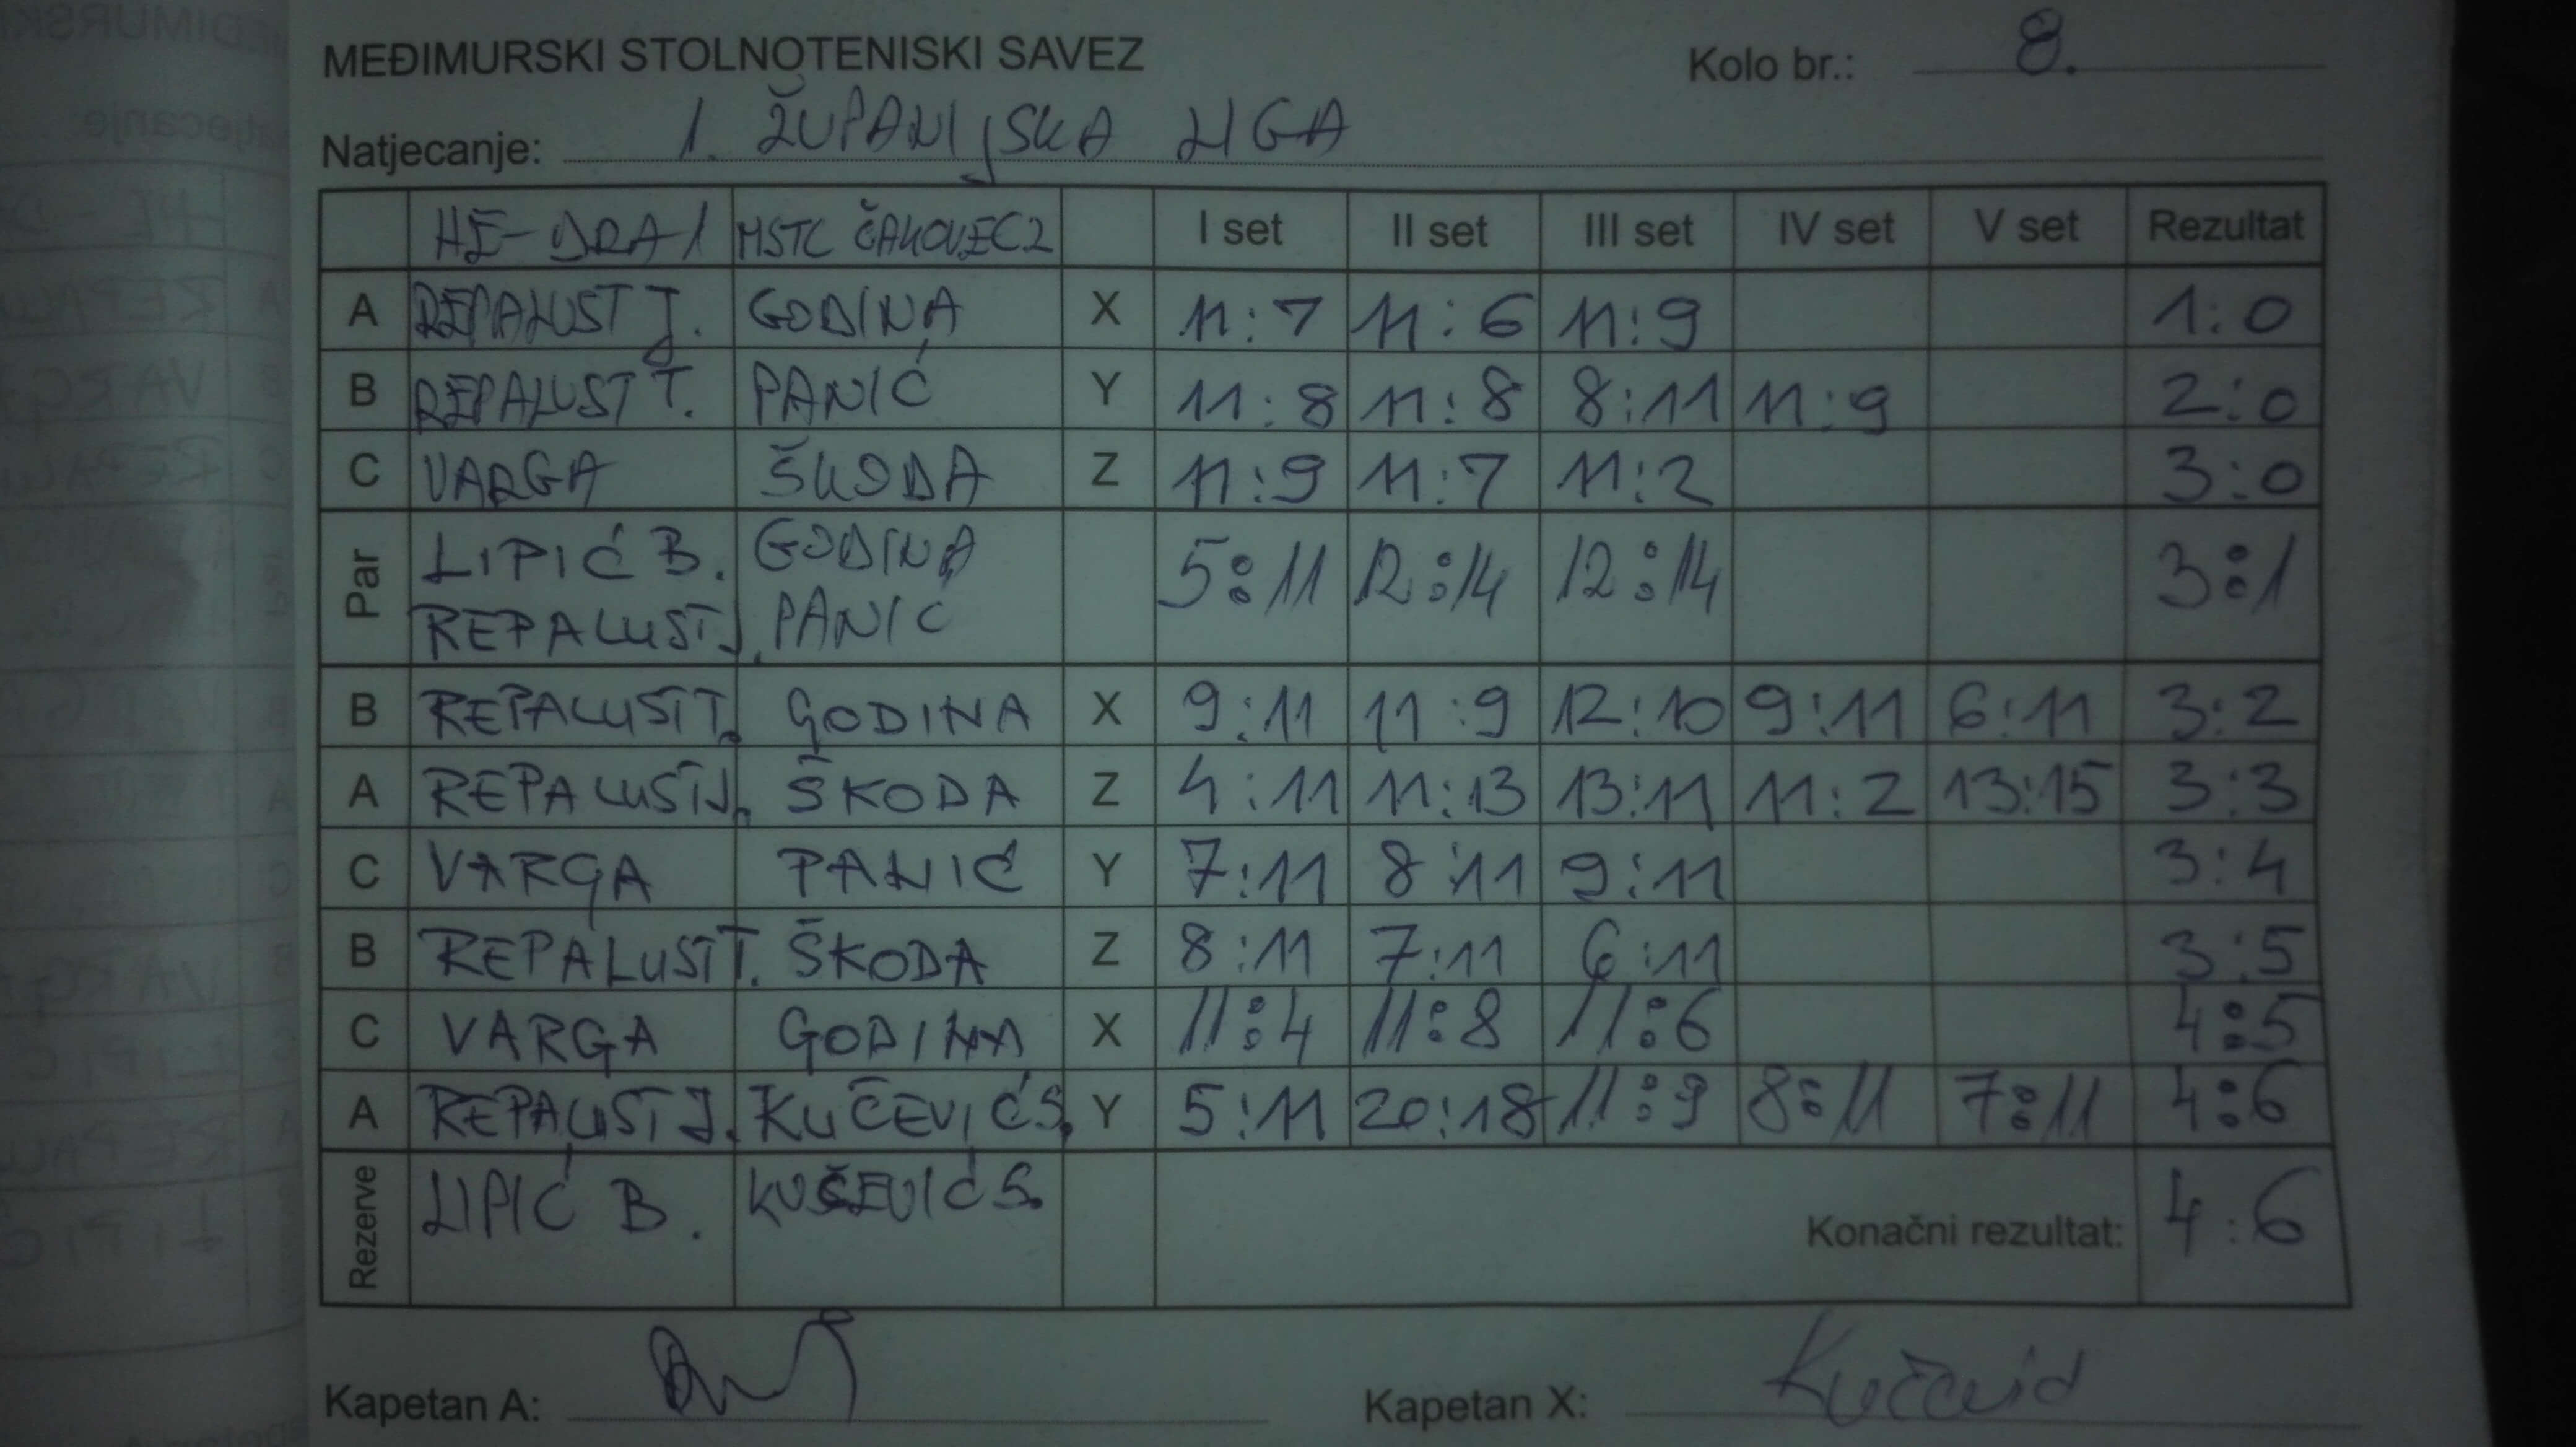 MEĐIMURSKI STOLNOTENISKI SAVEZ Kolo br.: 8.
Natjecanje: 1. ŽUPANIJSKA LIGA
HE-DRA 1 MSTC ČAKOVEC 2 I set II set III set IV set V set Rezultat
A REPALUST J. GODINA X 11:7 11:6 11:9 1:0
B REPALUST T. PANIĆ Y 11:8 11:8 8:11 11:9 2:0
C VARGA ŠKODA Z 11:9 11:7 11:2 3:0
Par LIPIĆ B. GODINA 5:11 12:14 12:14 3:1
REPALUST J. PANIC
B REPALUST T. GODINA X 9:11 11:9 12:10 9:11 6:11 3:2
A REPALUST J. ŠKODA Z 4:11 11:13 13:11 11:2 13:15 3:3
C VARGA PANIĆ Y 7:11 8:11 9:11 3:4
B REPALUST T. ŠKODA Z 8:11 7:11 6:11 3:5
C VARGA GODINA X 11:4 11:8 11:6 4:5
A REPALUST J. KUČEVIĆ S. Y 5:11 20:18 11:9 8:11 7:11 4:6
Rezerve LIPIĆ B. KUČEVIĆ S. Konačni rezultat: 4:6
Kapetan A: Kapetan X: